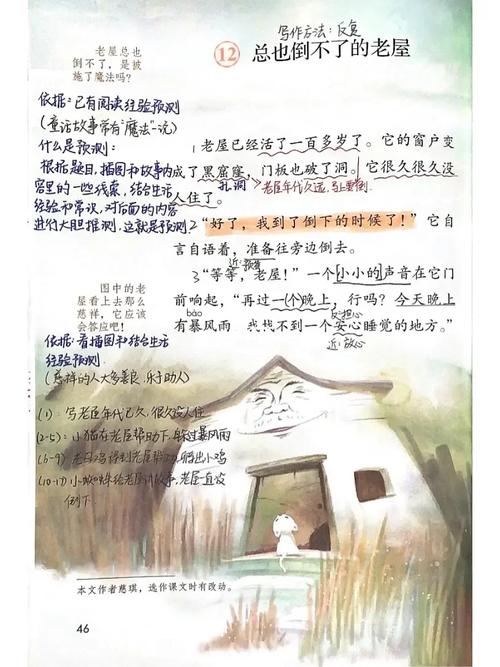 写作方法：反复
12 总也倒不了的老屋
老屋总也
倒不了，是被
施了魔法吗？
依据：已有阅读经验预测
（童话故事常有“魔法”一说）
什么是预测：
根据题目，插图和故事内
容里的一些线索，结合生活
经验和常识，对后面的内容
进行大胆推测，这就是预测
1 老屋已经活了一百多岁了。它的窗户变
成了黑窟窿，门板也破了洞。它很久很久没
孔洞 老屋年代久远，马上要倒
人住了。
2 “好了，我到了倒下的时候了！”它自
言自语着，准备往旁边倒去。
近：预备
3 “等等，老屋！”一个小小的声音在它门
前响起，“再过一个晚上，行吗？今天晚上
bào 反：担心
有暴风雨，我找不到一个安心睡觉的地方。”
近：放心
图中的老
屋看上去那么
慈祥，它应该
会答应吧！
依据：看插图和结合生活
经验预测
（慈祥的人大多善良、乐于助人）
(1)：写老屋年代已久，很久没人住
(2-5)：小猫在老屋帮助下，躲过暴风雨
(6-9) 老母鸡得到老屋帮助，孵出小鸡
(10-17) 小蜘蛛给老屋讲故事，老屋一直没
倒下
本文作者慈琪，选作课文时有改动。
46